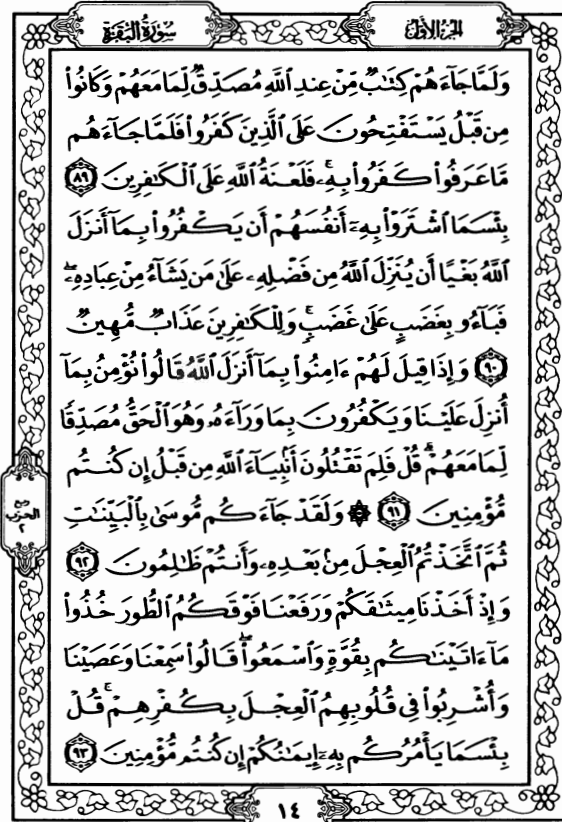 سُورَةُ البَقَرَةِ
الجزء الأول
وَلَمَّا جَآءَهُمْ كِتَٰبٌ مِّنْ عِندِ ٱللَّهِ مُصَدِّقٌ لِّمَا مَعَهُمْ وَكَانُوا۟
مِن قَبْلُ يَسْتَفْتِحُونَ عَلَى ٱلَّذِينَ كَفَرُوا۟ فَلَمَّا جَآءَهُم
مَّا عَرَفُوا۟ كَفَرُوا۟ بِهِۦ ۚ فَلَعْنَةُ ٱللَّهِ عَلَى ٱلْكَٰفِرِينَ ٨٩
بِئْسَمَا ٱشْتَرَوْا۟ بِهِۦٓ أَنفُسَهُمْ أَن يَكْفُرُوا۟ بِمَآ أَنزَلَ
ٱللَّهُ بَغْيًا أَن يُنَزِّلَ ٱللَّهُ مِن فَضْلِهِۦ عَلَىٰ مَن يَشَآءُ مِنْ عِبَادِهِۦ ۖ
فَبَآءُو بِغَضَبٍ عَلَىٰ غَضَبٍ ۚ وَلِلْكَٰفِرِينَ عَذَابٌ مُّهِينٌ
٩٠ وَإِذَا قِيلَ لَهُمْ ءَامِنُوا۟ بِمَآ أَنزَلَ ٱللَّهُ قَالُوا۟ نُؤْمِنُ بِمَآ
أُنزِلَ عَلَيْنَا وَيَكْفُرُونَ بِمَا وَرَآءَهُۥ وَهُوَ ٱلْحَقُّ مُصَدِّقًا
لِّمَا مَعَهُمْ ۗ قُلْ فَلِمَ تَقْتُلُونَ أَنۢبِيَآءَ ٱللَّهِ مِن قَبْلُ إِن كُنتُم
مُّؤْمِنِينَ ٩١ ۞ وَلَقَدْ جَآءَكُم مُّوسَىٰ بِٱلْبَيِّنَٰتِ
ثُمَّ ٱتَّخَذْتُمُ ٱلْعِجْلَ مِنۢ بَعْدِهِۦ وَأَنتُمْ ظَٰلِمُونَ ٩٢
وَإِذْ أَخَذْنَا مِيثَٰقَكُمْ وَرَفَعْنَا فَوْقَكُمُ ٱلطُّورَ خُذُوا۟
مَآ ءَاتَيْنَٰكُم بِقُوَّةٍ وَٱسْمَعُوا۟ ۖ قَالُوا۟ سَمِعْنَا وَعَصَيْنَا
وَأُشْرِبُوا۟ فِى قُلُوبِهِمُ ٱلْعِجْلَ بِكُفْرِهِمْ ۚ قُلْ
بِئْسَمَا يَأْمُرُكُم بِهِۦٓ إِيمَٰنُكُمْ إِن كُنتُم مُّؤْمِنِينَ ٩٣
ربع
الحزب
٢
١٤